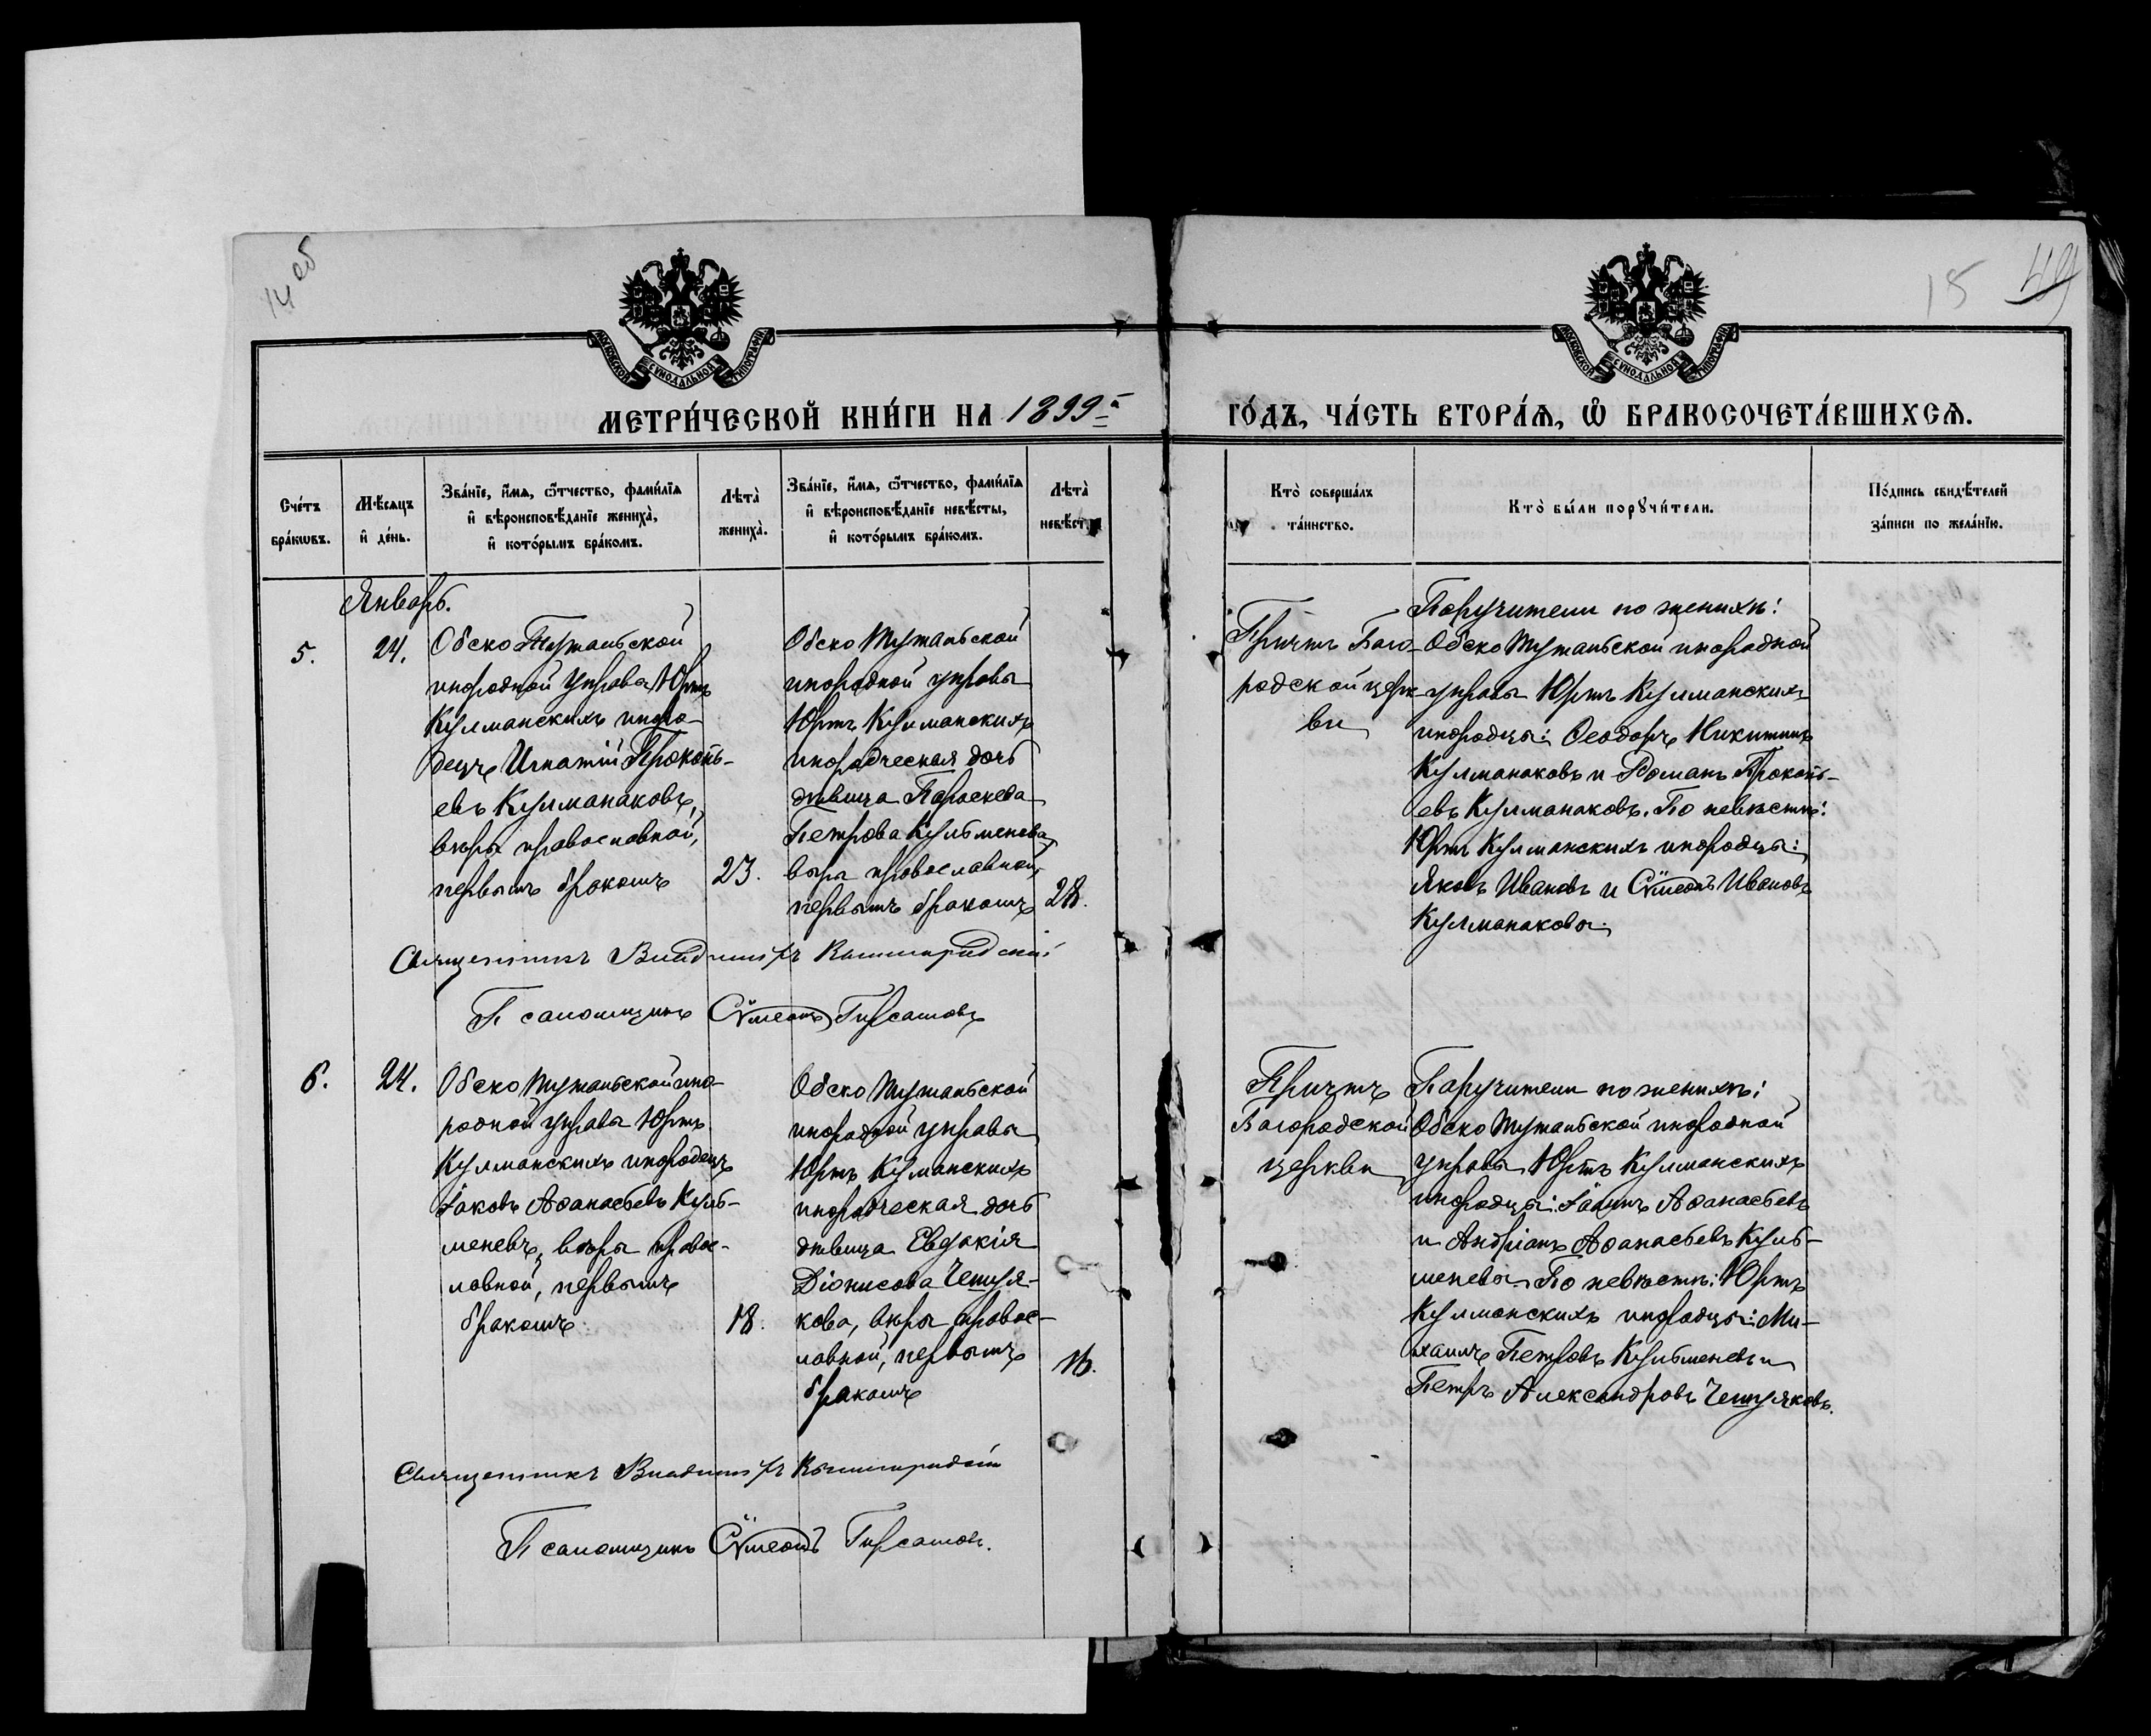 14 об
15 49
МОСКОВСКОЙ СѴНОДАЛЬНОЙ ТИПОГРАФІИ
МОСКОВСКОЙ СѴНОДАЛЬНОЙ ТИПОГРАФІИ
МЕТРИ́ЧЕСКОЙ КНИ́ГИ НА 1899й
ГО́ДЪ, ЧА́СТЬ ВТОРА́Ѧ, Ѽ БРАКОСОЧЕТА́ВШИХСѦ.
Сче́тъ
бра́кѡвъ.
Мѣ́сяцъ
и҆ де́нь.
Зва́нїе, и҆́мѧ, ѻ҆́тчество, фамилїѧ
и҆ вѣроисповѣ́данїе жениха̀,
и҆ кото́рымъ бра́комъ.
Лѣта̀
жениха̀.
Зва́нїе, и҆́мѧ, ѻ҆́тчество, фамилїѧ
и҆ вѣроисповѣ́данїе невѣ́сты,
и҆ кото́рымъ бра́комъ.
Лѣта̀
невѣ́ст
Кто̀ соверша́лъ
та́инство.
Кто̀ бы́ли порꙋчи́тели.
По́дпись свидѣ́телей
за́писи по жела́нїю.
Январь.
5.
24.
Обско Тутальской
инородной управы Юртъ
Кулманскихъ иноро-
децъ Игнатій Прокопь-
евъ Кулманаковъ,
вѣры православной,
первымъ бракомъ
23.
Обско Тутальской
инородной управы
Юртъ Кулманскихъ
инородческая дочь
дѣвица Параскева
Петрова Кульменева
вѣры православной,
первымъ бракомъ
28.
Причтъ Бого-
родской церк-
ви
Поручители по женихѣ:
Обско Тутальской инородной
управы Юртъ Кулманскихъ
инородцы: Ѳеодоръ Никитинъ
Кулманаковъ и Романъ Прокопь-
евъ Кулманаковъ. По невѣстѣ:
Юртъ Кулманскихъ инородцы:
Яковъ Ивановъ и Сѵмеонъ Ивановъ
Кулманаковы.
Священникъ Владиміръ
Псаломщикъ Сѵмеонъ Гирсамовъ
6.
24.
Обско Тутальской ино-
родной управы Юртъ
Кулманскихъ инородецъ
Іаковъ Аѳанасьевъ Куль-
меневъ, вѣры право-
славной, первымъ
бракомъ
18.
Обско Тутальской
инородной управы
Юртъ Кулманскихъ
инородческая дочь
дѣвица Евдокія
Діонисова Чешуя-
кова, вѣры правос-
лавной, первымъ
бракомъ
16.
Причтъ
Богородской
церкви
Поручители по женихѣ:
Обско Тутальской инородной
управы Юртъ Кулманскихъ
инородцы: Аѳанасьевъ
и Андріанъ Аѳанасьевъ Куль-
меневы. По невѣстѣ: Юртъ
Кулманскихъ инородцы: Ми-
хаилъ Петровъ Кульменевъ и
Петръ Александровъ Чешуяковъ.
Священникъ Владиміръ
Псаломщикъ Сѵмеонъ Гирсамовъ.